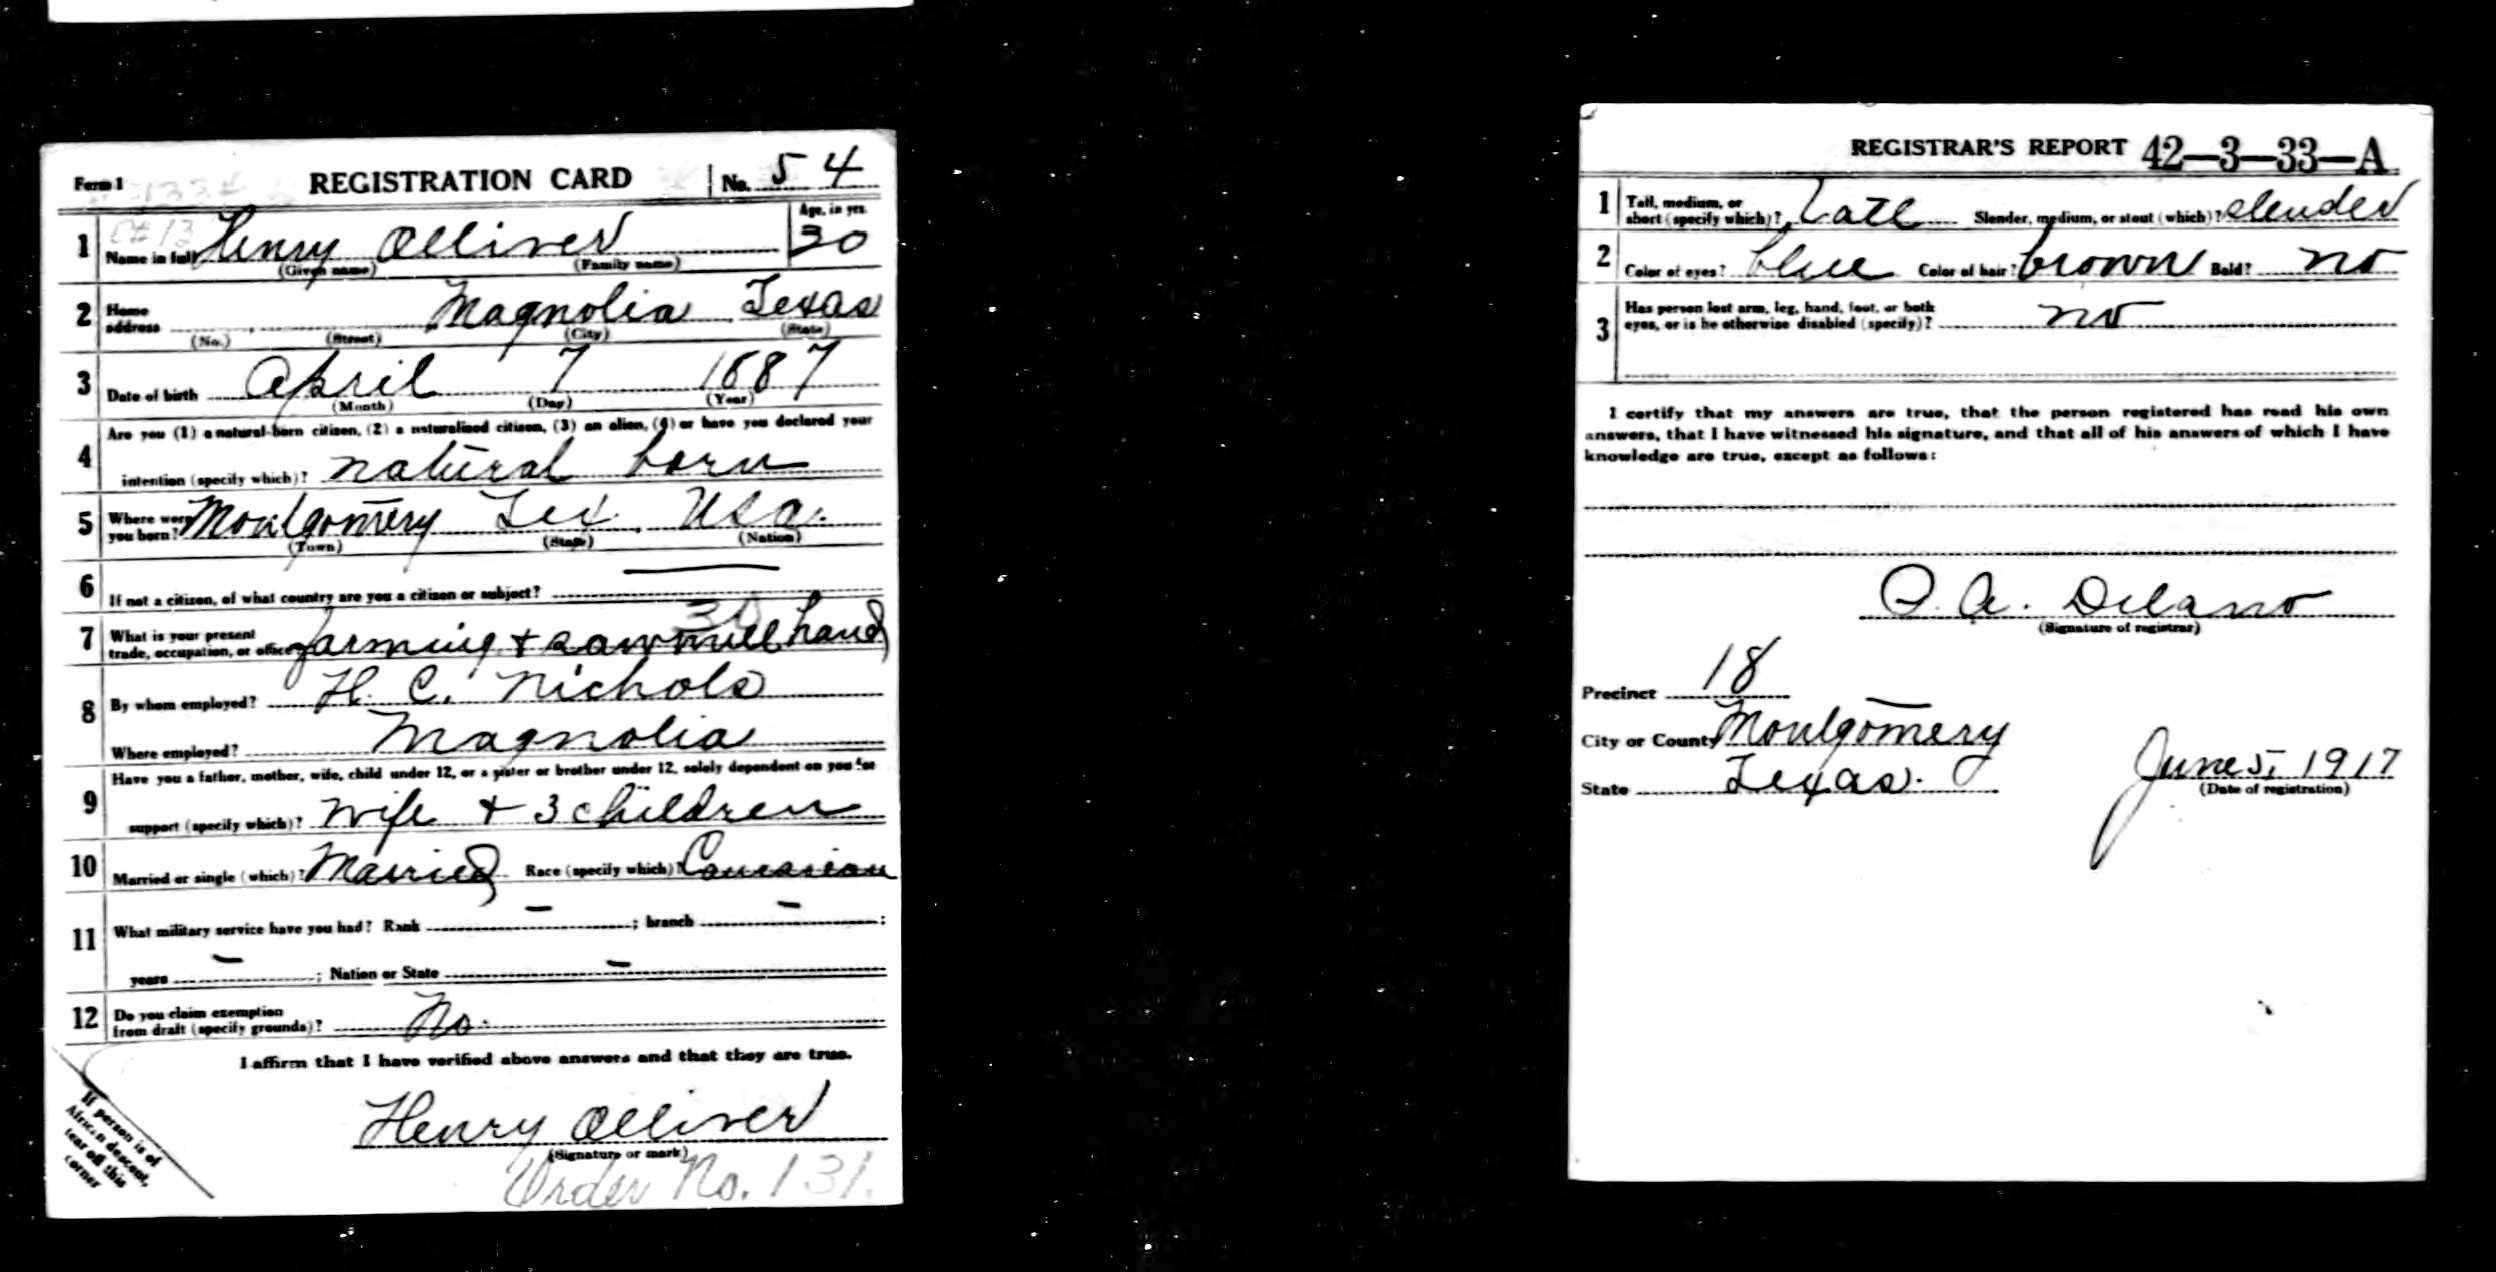 Form 1 REGISTRATION CARD No. 54
1 Name in full Henry Olliver Age, in yrs. 30
(Given name) (Family name)
2 Home address Magnolia Texas
(No.) (Street) (City) (State)
3 Date of birth April 7 1887
(Month) (Day) (Year)
4 Are you (1) a natural-born citizen, (2) a naturalized citizen, (3) an alien, (4) or have you declared your
intention (specify which)? natural born
5 Where were you born? Montgomery Tex. USA.
(Town) (State) (Nation)
6 If not a citizen, of what country are you a citizen or subject? —
7 What is your present trade, occupation, or office? farming + sawmill hand
8 By whom employed? H. C. Nichols
Where employed? Magnolia
9 Have you a father, mother, wife, child under 12, or a sister or brother under 12, solely dependent on you for
support (specify which)? Wife + 3 children
10 Married or single (which)? Married Race (specify which)? Caucasian
11 What military service have you had? Rank — ; branch — ;
years — ; Nation or State —
12 Do you claim exemption
from draft (specify grounds)? No.
I affirm that I have verified above answers and that they are true.
Henry Olliver
(Signature or mark)
Order No. 131.
If person is of
African descent,
tear off this
corner
REGISTRAR'S REPORT 42—3—33—A
1 Tall, medium, or
short (specify which)? Tall Slender, medium, or stout (which)? slender
2 Color of eyes? blue Color of hair? brown Bald? no
3 Has person lost arm, leg, hand, foot, or both
eyes, or is he otherwise disabled (specify)? no
I certify that my answers are true, that the person registered has read his own
answers, that I have witnessed his signature, and that all of his answers of which I have
knowledge are true, except as follows:
A. Delano
(Signature of registrar)
Precinct 18
City or County Montgomery
State Texas.
June 5, 1917
(Date of registration)